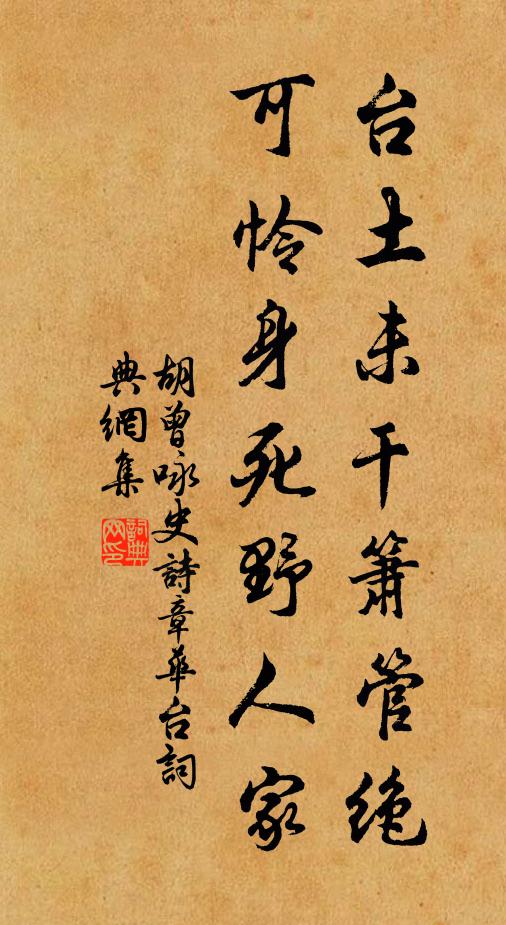 台土未干箫管绝
可怜身死野人家
胡曾咏史詩章华台詞
典網集
詞典网印